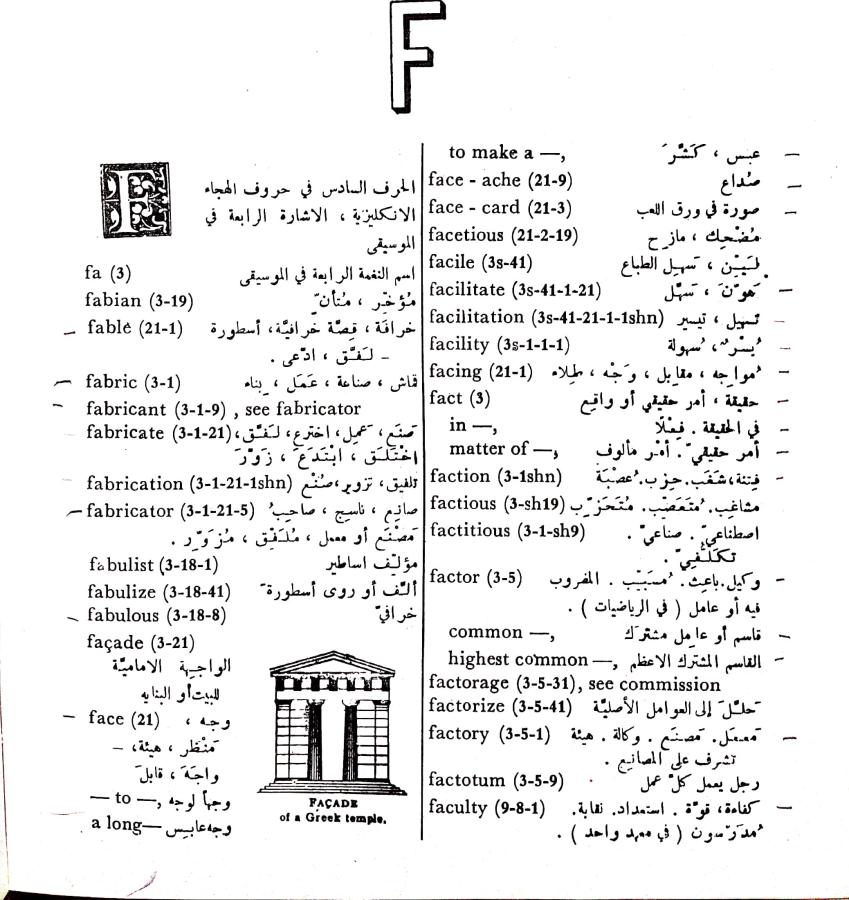 F
الحرف السادس في حروف الهجاء
الانكليزية ، الاشارة الرابعة في
الموسيقى
fa (3) اسم النغمة الرابعة في الموسيقى
fabian (3-19) مُؤخِّر ، مُتأنّ
fable (21-1) خرافة ، قصّة خرافيَّة، أسطورة
– لَفَّق ، ادّعى .
fabric (3-1) قماش ، صناعة ، عَمَل ، بناء
fabricant (3-1-9) , see fabricator
fabricate (3-1-21) صَنَع، عَمِل، اخترع، لَفَّق،
اخْتَلَق ، ابْتَدَعَ ، زَوَّرَ
fabrication (3-1-21-1shn) تلفيق، تزوير، صُنْع
fabricator (3-1-21-5) صانِع ، ناسج ، صاحبُ
مَصْنَع أو معمل ، مُلَفِّق ، مُزَوِّر .
fabulist (3-18-1) مؤلِّف اساطير
fabulize (3-18-41) ألَّف أو روى أسطورة
fabulous (3-18-8) خرافيّ
façade (3-21)
الواجهة الاماميَّة
للبيت أو البنايه
face (21) وجه ،
مَنْظَر ، هيئة، –
واجَهَ ، قابلَ
— to —, وجهاً لوجه
a long— وجه عابِس
FAÇADE
of a Greek temple.
to make a —, عبس ، كَشَّرَ
face - ache (21-9) صُداع
face - card (21-3) صورة في ورق اللعب
facetious (21-2-19) مُضْحِك ، مازح
facile (3s-41) لَيِّن ، سَهِل الطباع
facilitate (3s-41-1-21) هَوَّنَ ، سَهَّل
facilitation (3s-41-21-1-1shn) تسهيل ، تيسير
facility (3s-1-1-1) يُسْرٌ، سُهولة
facing (21-1) مُواجِه ، مقابِل ، وَجْه ، طِلاء
fact (3) حقيقة ، أمر حقيقي أو واقِع
in —, في الحقيقة . فِعْلًا
matter of —, أمر حقيقيّ . أمْر مألوف
faction (3-1shn) فِتنة، شَغَب. حِزب. عُصْبَة
factious (3-sh19) مشاغِب. مُتَعَصِّب. مُتَحَزِّب
factitious (3-1-sh9) اصطناعيّ . صناعيّ .
تَكَلُّفيّ .
factor (3-5) وكيل. باعِث. مُسَبِّب . المضروب
فيه أو عامل ( في الرياضيات ) .
common —, قاسم أو عامِل مشترَك
highest common —, القاسم المشترك الاعظم
factorage (3-5-31), see commission
factorize (3-5-41) حَلَّلَ إلى العوامل الأصليَّة
factory (3-5-1) مَعمَل. مَصنَع . وكالة . هيئة
تشرف على المصانِع .
factotum (3-5-9) رجل يعمل كلّ عمل
faculty (9-8-1) كفاءة، قوّة . استعداد. نقابة.
مُدَرِّسون ( في معهد واحد ) .